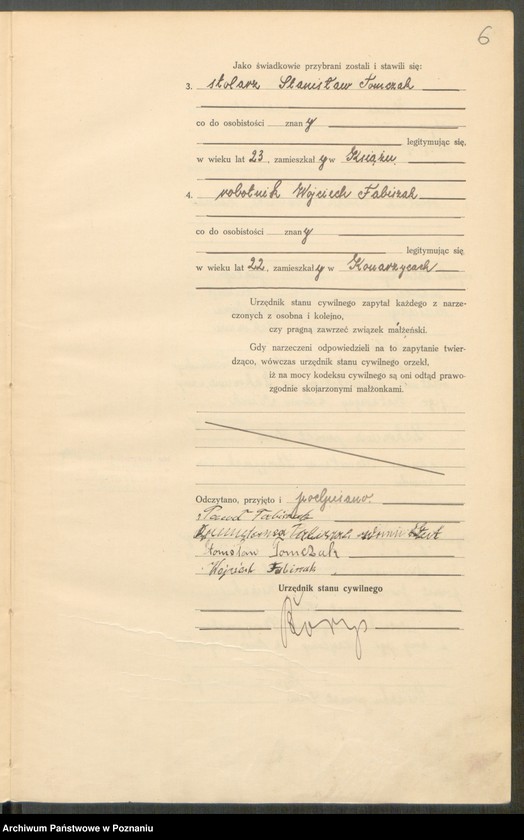 6
Jako świadkowie przybrani zostali i stawili się:
3. stolarz Stanisław Tomczak
co do osobistości znany
legitymując się,
w wieku lat 23, zamieszkał y w Książu.
4. robotnik Wojciech Fabiszak
co do osobistości znany
legitymując się
w wieku lat 22, zamieszkał y w Konarzycach
Urzędnik stanu cywilnego zapytał każdego z narze-
czonych z osobna i kolejno,
czy pragną zawrzeć związek małżeński.
Gdy narzeczeni odpowiedzieli na to zapytanie twier-
dząco, wówczas urzędnik stanu cywilnego orzekł,
iż na mocy kodeksu cywilnego są oni odtąd prawo-
zgodnie skojarzonymi małżonkami.
Odczytano, przyjęto i podpisano.
Fabiszak
Fabiszak
Stanisław Tomczak
Wojciech Fabiszak
Urzędnik stanu cywilnego
Archiwum Państwowe w Poznaniu